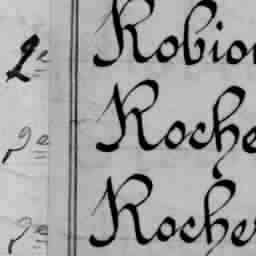 2e Robion
2e Roche
2e Rocher